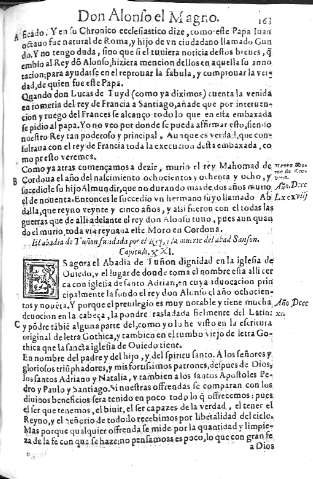 Don Alonso el Magno. 163
A ficado. Y en su Chronico ecclesiastico dize, como este Papa Iuan
octauo fue natural de Roma, y hijo de vn ciudadano llamado Gun
do. Y no tengo duda, sino que si el tuuiera noticia destos breues, q̃
embio al Rey dõ Alonso, hiziera mencion dellos en aquella su anno
tacion; para ayudarse en el reprouar la fabula, y comprouar la ver-
dad, de quien fue este Papa.
Quando don Lucas de Tuyd (como ya diximos) cuenta la venida
en romeria del rey de Francia a Santiago, añade que por intercen-
cion y ruego del Frances se alcançò todo lo que en esta embaxada
se pidio al papa. Yo no veo por donde se pueda affirmar esto, siendo
nuestro Rey tan poderoso y principal. Aunque es verdad, que con-
sultaua con el rey de Francia toda la execucion desta embaxada, co
mo presto veremos.
Como ya atras començamos a dezir, murio el rey Mahomad de
B Cordoua el año del nascimiento ochocientos y ochenta y ocho, y
sucediole su hijo Almundir, que no durando mas de dos años murio
el de nouenta. Entonces le succedio vn hermano suyo llamado Ab
dalla, que reyno veynte y cinco años, y assi fueron con el todas las
guerras que de alli adelante el rey don Alonso tuuo, pues aun quan
do el murio, toda via reynaua este Moro en Cordoua.
Año. Dccc
Lxxxviij
El abadia de Tuñon fundada por el Rey, y la muerte del abad Sanson.
Capitulo. XXI.
Es agora el Abadia de Tuñon dignidad en la iglesia de
Ouiedo, y el lugar de donde toma el nombre esta alli cer
ca con iglesia de santo Adrian, en cuya aduocacion prin
cipalmente la fundo el rey don Alonso el año ochocien-
tos y nouẽta. Y porque el preuilegio es muy notable y tiene mucha
deuocion en la cabeça, la pondre trasladada fielmente del Latin:
C y põdre tãbiẽ alguna parte del, como yo lo he visto en la escritura
original de letra Gothica, y tambien en el tumbo viejo de letra Go-
thica que la sancta iglesia de Ouiedo tiene.
Año Dccc
xc.
En nombre del padre y del hijo, y del spiritu santo. A los señores y
gloriosos triumphadores, y mis fortissimos patrones, despues de Dios,
los santos Adriano y Natalia, y tambien a los santos Apostoles Pe-
dro y Paulo y Santiago. Si nuestras offrendas se comparan con los
diuinos beneficios sera tenido en poco todo lo q̃ offrecemos: pues
el ser que tenemos, el biuir, el ser capaces de la verdad, el tener el
Reyno, y el señorio de todo lo recebimos por libertalidad del cielo.
Mas porque qualquier offrenda se mide por la quantidad y limpie-
za de la fe con que se haze; no pensamos es poco, lo que con gran fe
a Dios